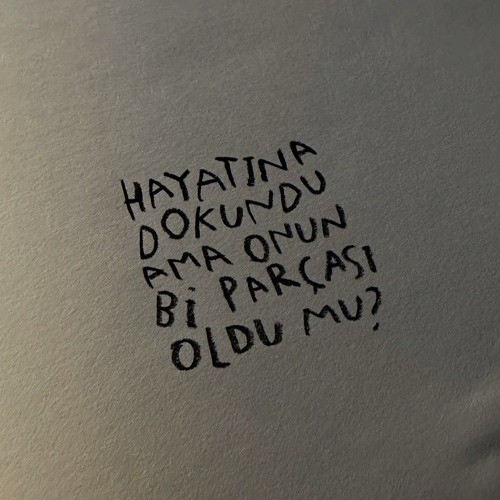 HAYATINA
DOKUNDU
AMA ONUN
Bİ PARÇASI
OLDU MU?